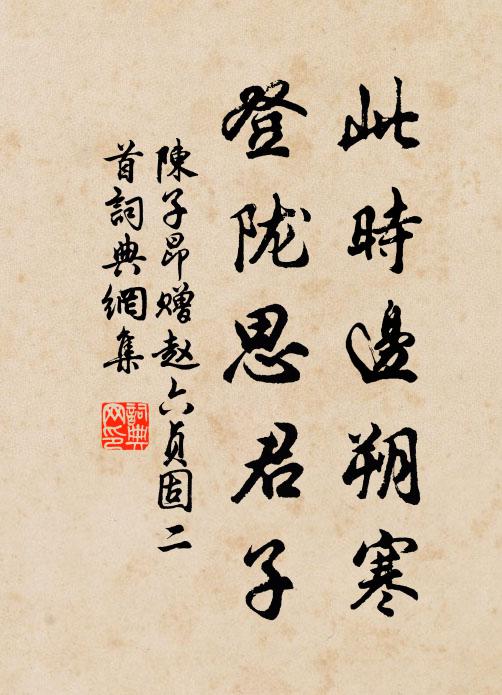 此時邊朔寒
登陇思君子
陳子昂赠赵六貞固二
首詞典網集
詞典网印